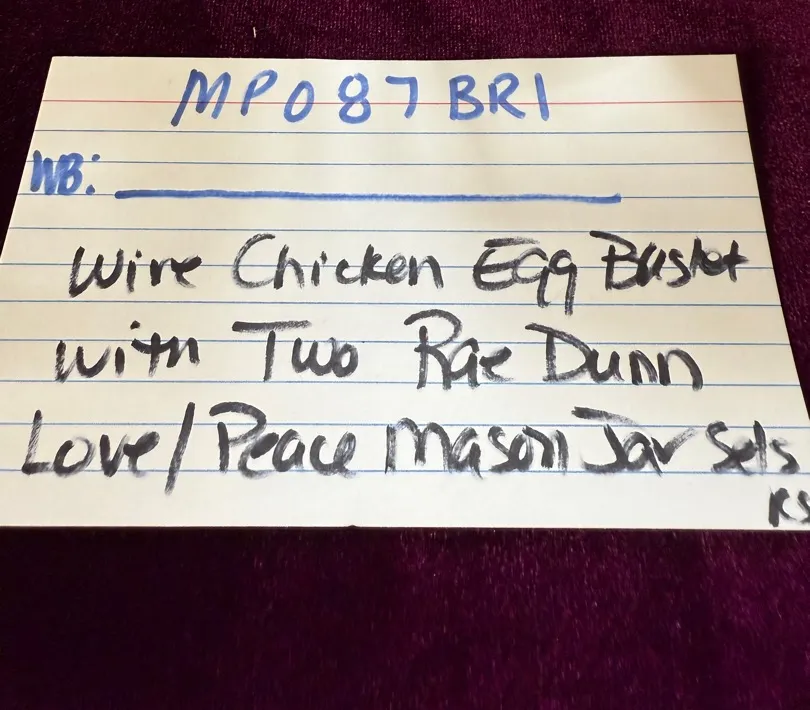 MP087BR1
WB:
Wire Chicken Egg Basket
with Two Rae Dunn
Love/Peace Mason Jar Sets
RS